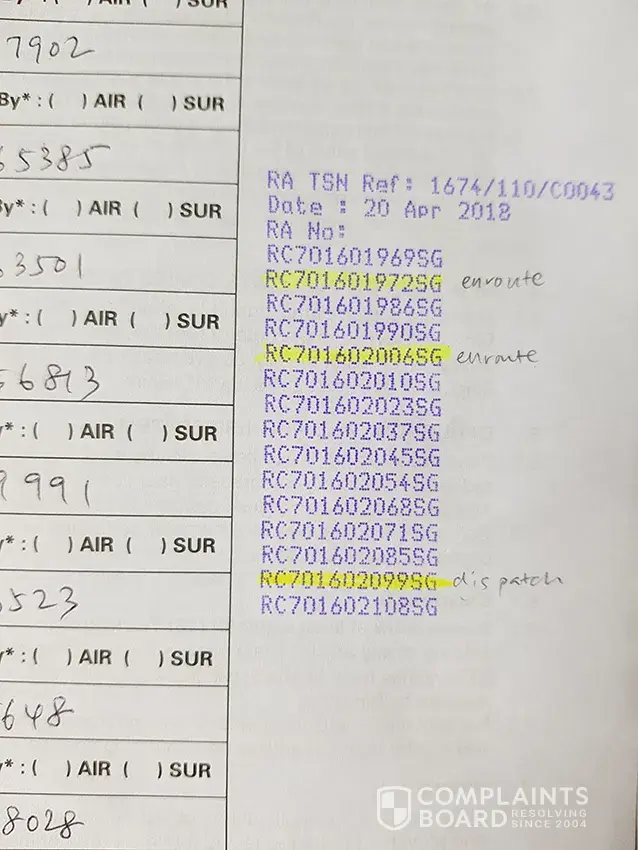 SUR
7902
By* : (   ) AIR (   ) SUR
5385
By* : (   ) AIR (   ) SUR
3501
y* : (   ) AIR (   ) SUR
56813
y* : (   ) AIR (   ) SUR
9991
y* : (   ) AIR (   ) SUR
523
y* : (   ) AIR (   ) SUR
648
y* : (   ) AIR (   ) SUR
8028
RA TSN Ref: 1674/110/C0043
Date : 20 Apr 2018
RA No:
RC701601969SG
RC701601972SG enroute
RC701601986SG
RC701601990SG
RC701602006SG enroute
RC701602010SG
RC701602023SG
RC701602037SG
RC701602045SG
RC701602054SG
RC701602068SG
RC701602071SG
RC701602085SG
RC701602099SG dispatch
RC701602108SG
COMPLAINTS
BOARD RESOLVING
SINCE 2004